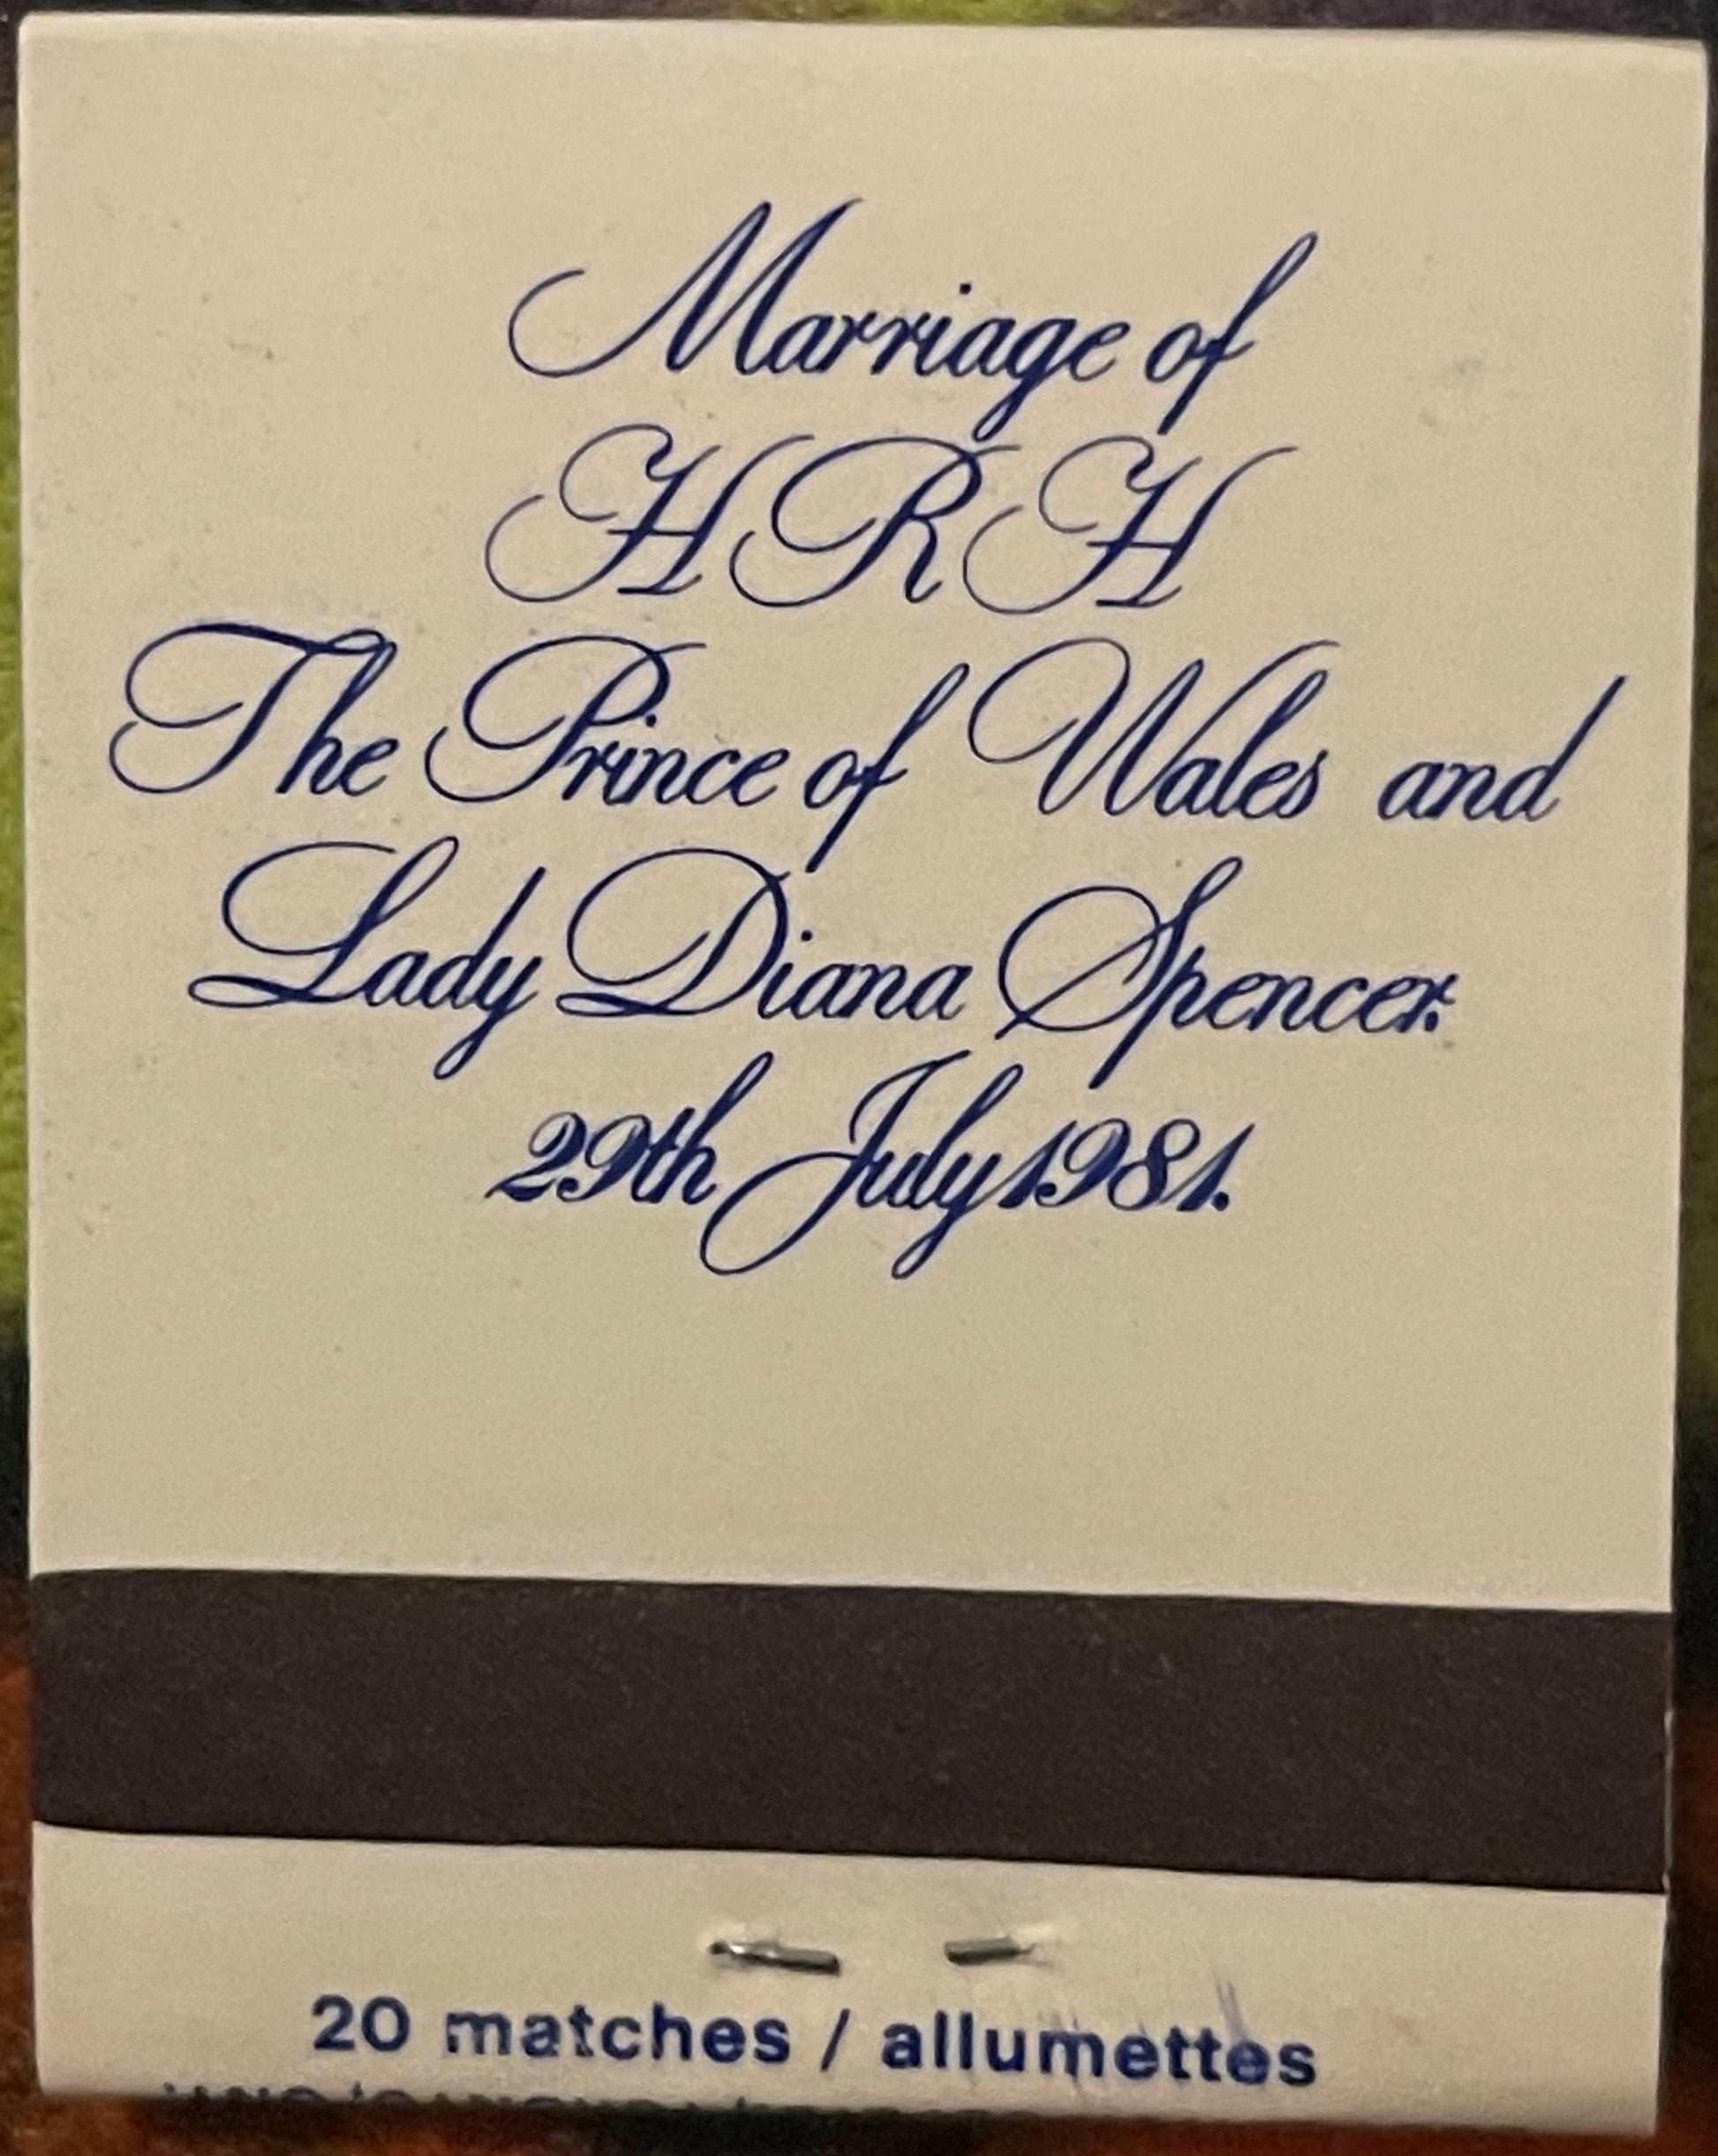 Marriage of
HRH
The Prince of Wales and
Lady Diana Spencer.
29th July 1981.
20 matches / allumettes